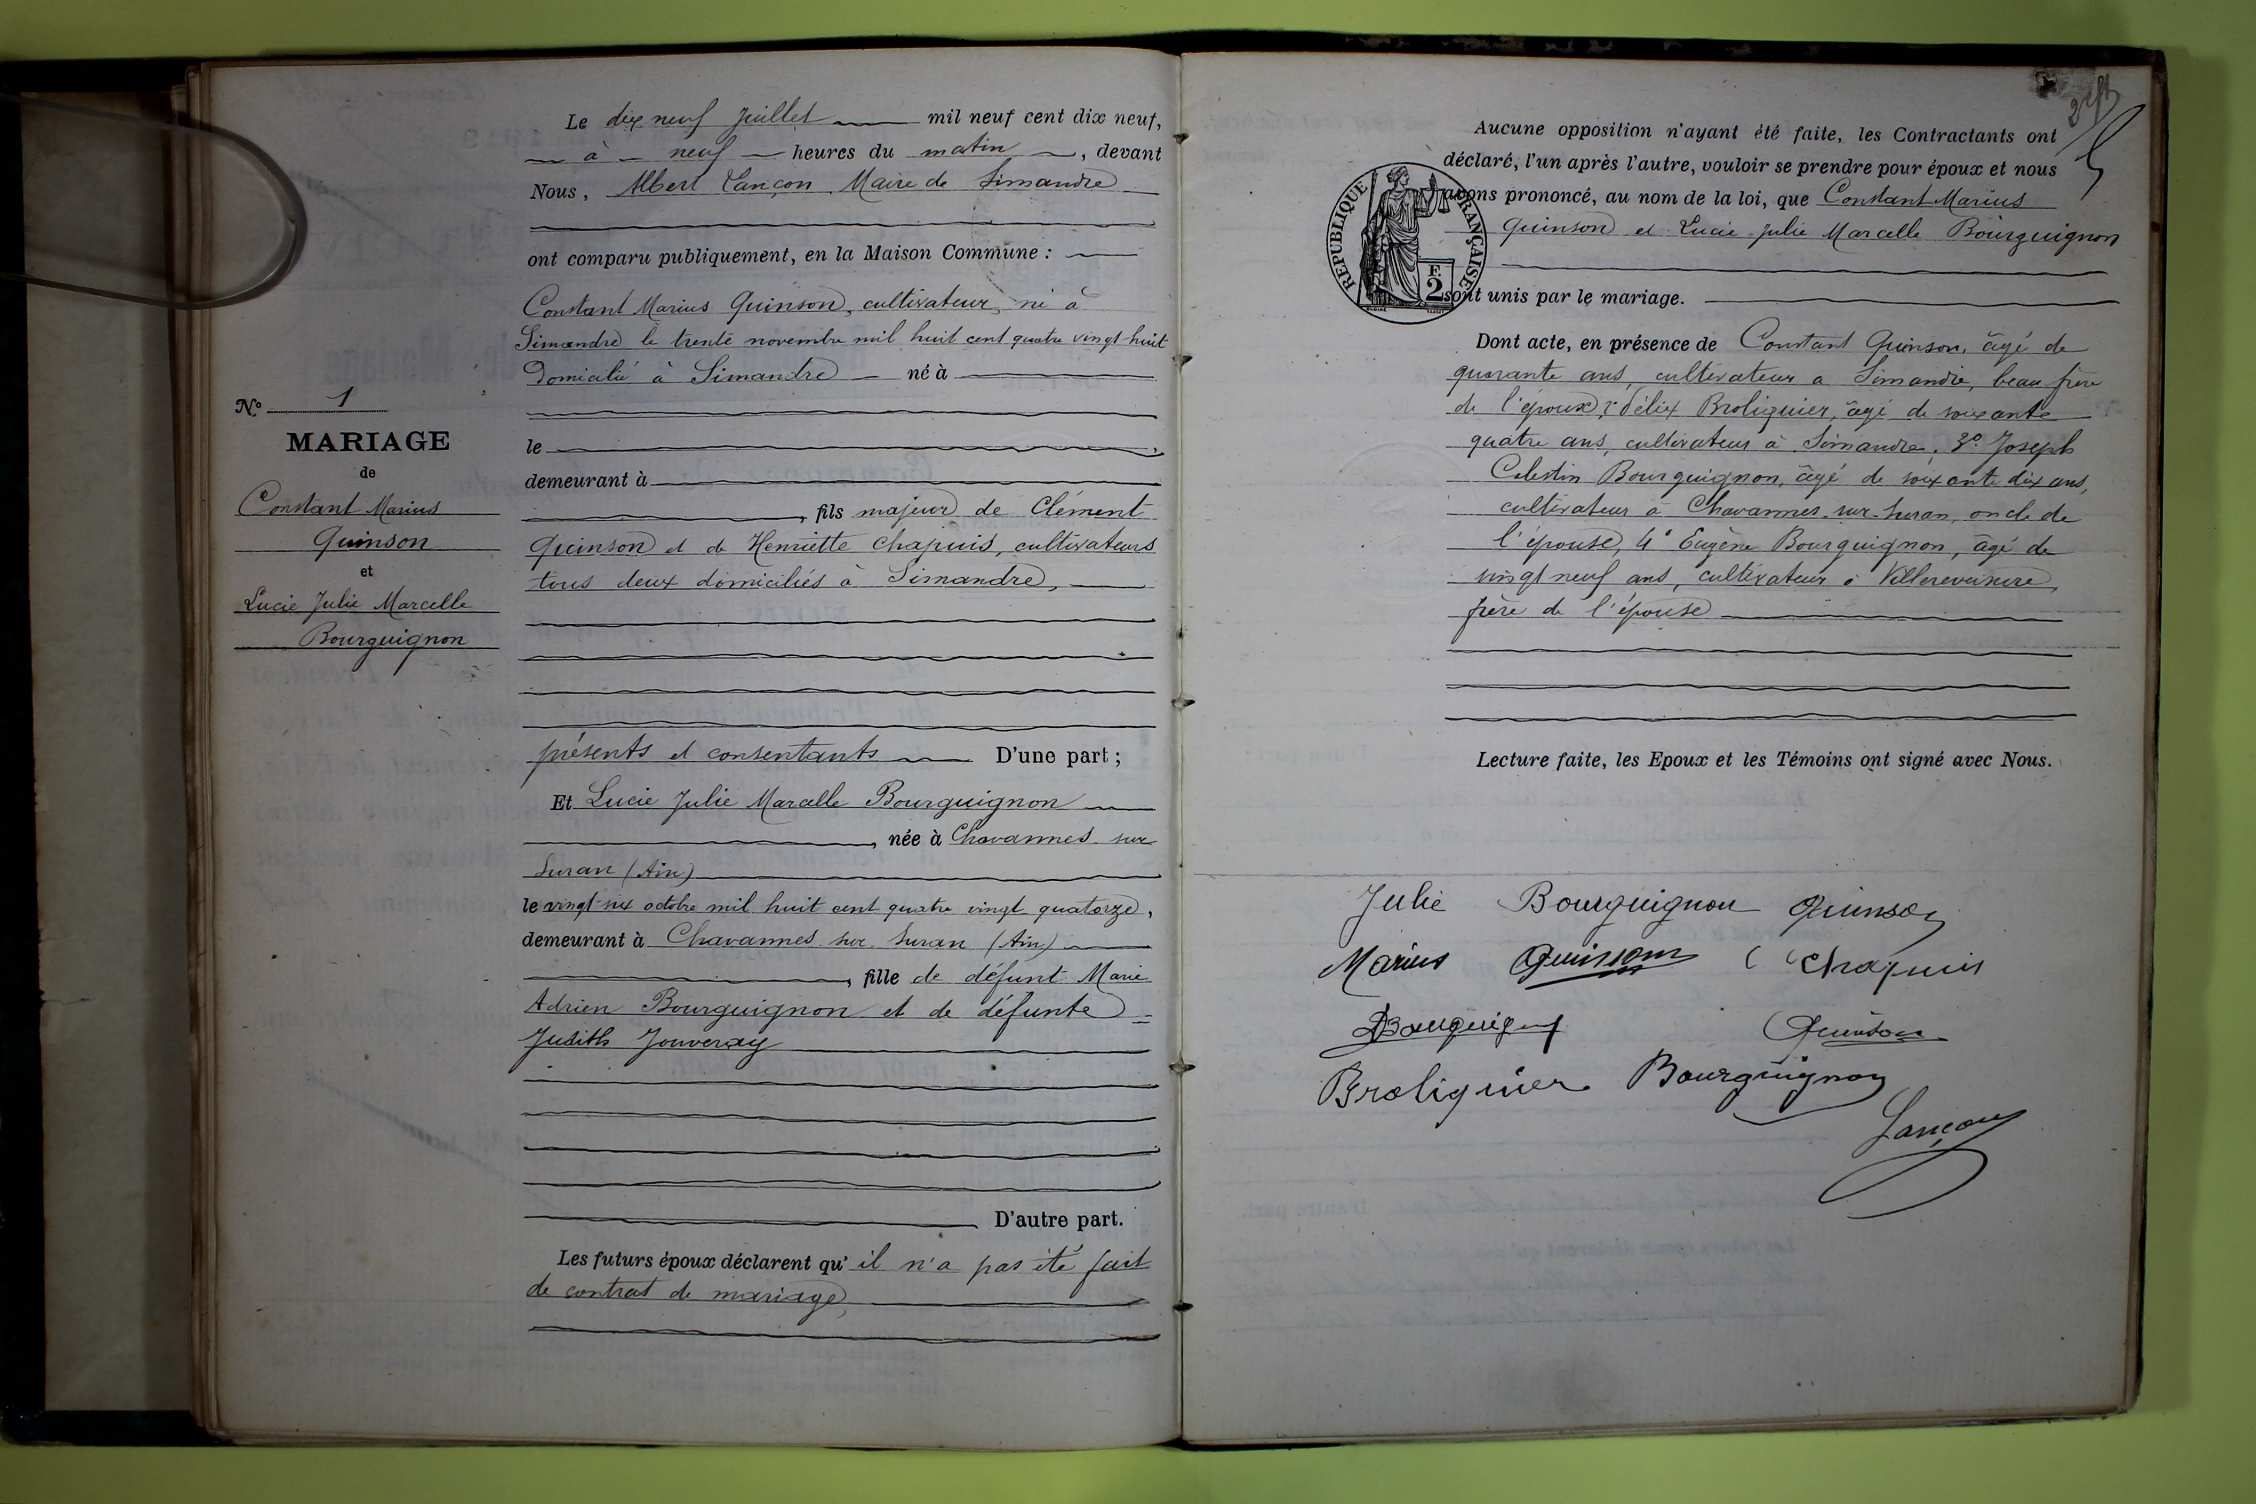 N° 1
MARIAGE
de
Constant Marius
Quinson
et
Lucie Julie Marcelle
Bourguignon
Le dix neuf Juillet mil neuf cent dix neuf,
à neuf heures du matin, devant
Nous, Albert Lançon Maire de Simandre
ont comparu publiquement, en la Maison Commune :
Constant Marius Quinson, cultivateur, né à
Simandre le trente novembre mil huit cent quatre vingt huit
Domicilié à Simandre né à
le
demeurant à
, fils majeur de Clément
Quinson et de Henriette Chapuis, cultivateurs
tous deux domiciliés à Simandre,
présents et consentants D'une part ;
Et Lucie Julie Marcelle Bourguignon
, née à Chavannes sur
Suran (Ain)
le vingt six octobre mil huit cent quatre vingt quatorze,
demeurant à Chavannes sur Suran (Ain)
, fille de défunt Marie
Adrien Bourguignon et de défunte
Judith Jouveray
D'autre part.
Les futurs époux déclarent qu'il n'a pas été fait
de contrat de mariage,
Aucune opposition n'ayant été faite, les Contractants ont
déclaré, l'un après l'autre, vouloir se prendre pour époux et nous
avons prononcé, au nom de la loi, que Constant Marius
Quinson et Lucie Julie Marcelle Bourguignon
sont unis par le mariage.
RÉPUBLIQUE FRANÇAISE
F.
2
Dont acte, en présence de Constant Quinson, âgé de
quarante ans, cultivateur a Simandre, beau frère
de l'époux, 2° Félix Broliquier, âgé de soixante
quatre ans, cultivateur à Simandre, 3° Joseph
Celestin Bourguignon, âgé de soixante dix ans,
cultivateur à Chavannes sur Suran, oncle de
l'épouse, 4° Eugène Bourguignon, âgé de
vingt neuf ans, cultivateur à Villereversure,
frère de l'épouse
Lecture faite, les Epoux et les Témoins ont signé avec Nous.
Julie Bourguignon Quinson
Marius Quinson Chapuis
Bourguignon Quinson
Broliquier Bourguignon
Lançon